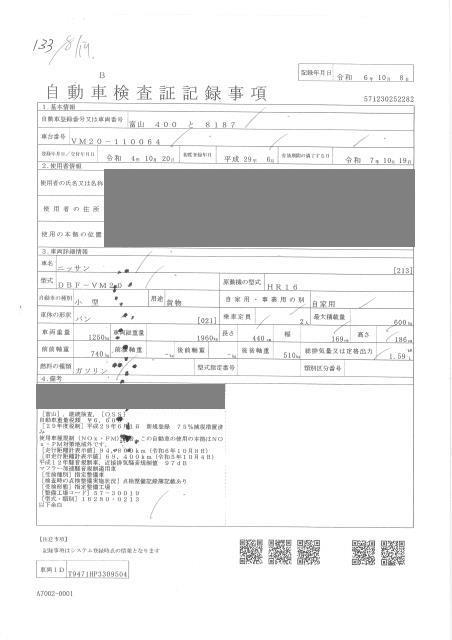 133 8/19.
B
記録年月日 令和 6年10月 8日
自動車検査証記録事項
571230252282
1.基本情報
自動車登録番号又は車両番号 富山 400 と 8187
車台番号 VM20-110064
登録年月日/交付年月日 令和 4年10月20日 初度登録年月 平成 29年 6月 有効期間の満了する日 令和 7年10月19日
2.使用者情報
使用者の氏名又は名称
使用者の住所
使用の本拠の位置
3.車両詳細情報
車名 ニッサン [213]
型式 DBF-VM20 原動機の型式 HR16
自動車の種別 小型 用途 貨物 自家用・事業用の別 自家用
車体の形状 バン [021] 乗車定員 2人 最大積載量 600kg
車両重量 1250kg 車両総重量 1960kg 長さ 440cm 幅 169cm 高さ 186cm
前前軸重 740kg 前後軸重 -kg 後前軸重 -kg 後後軸重 510kg 総排気量又は定格出力 1.59L
燃料の種類 ガソリン 型式指定番号 類別区分番号
4.備考
[富山],継続検査,[OSS]
自動車重量税額 ¥6,60
[29年度税制]平成29年6月 6日 新規登録 75%減税措置済
み
使用車種規制(NOx・PM) この自動車の使用の本拠はNO
x・PM対策地域外です。
[走行距離計表示値] 94,800km(令和6年10月8日)
[旧走行距離計表示値] 69,400km(令和5年10月4日)
平成12年騒音規制車、近接排気騒音規制値 97dB
マフラー加速騒音規制適用車
[受検種別]指定整備車
[検査時の点検整備実施状況]点検整備記録簿記載あり
[受検形態]指定整備工場
[整備工場コード]57-30019
[型式・類別]16280-0213
以下余白
【注意事項】
記録事項はシステム登録時点の情報となります
車両ID T9471HP3309504
A7002-0001